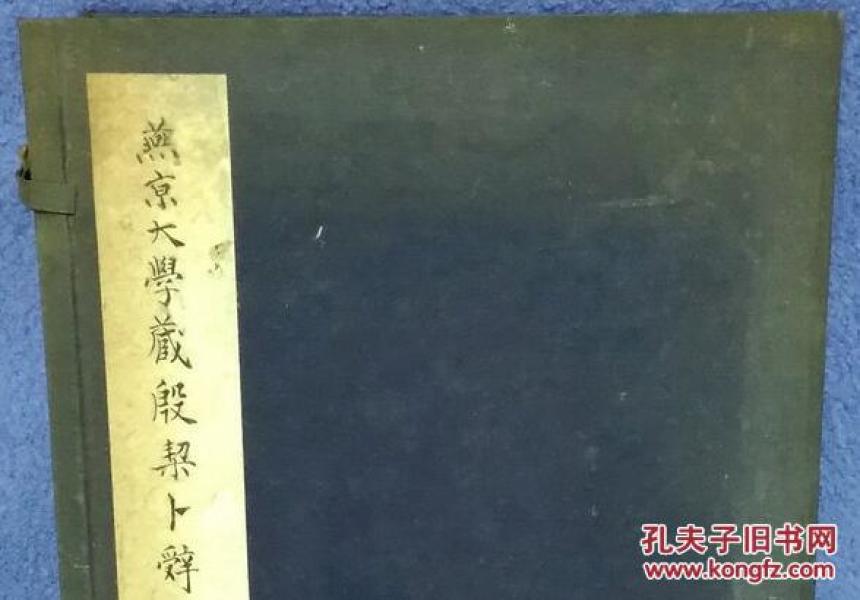 燕京大學藏殷栔卜辭
孔夫子旧书网
www.kongfz.com